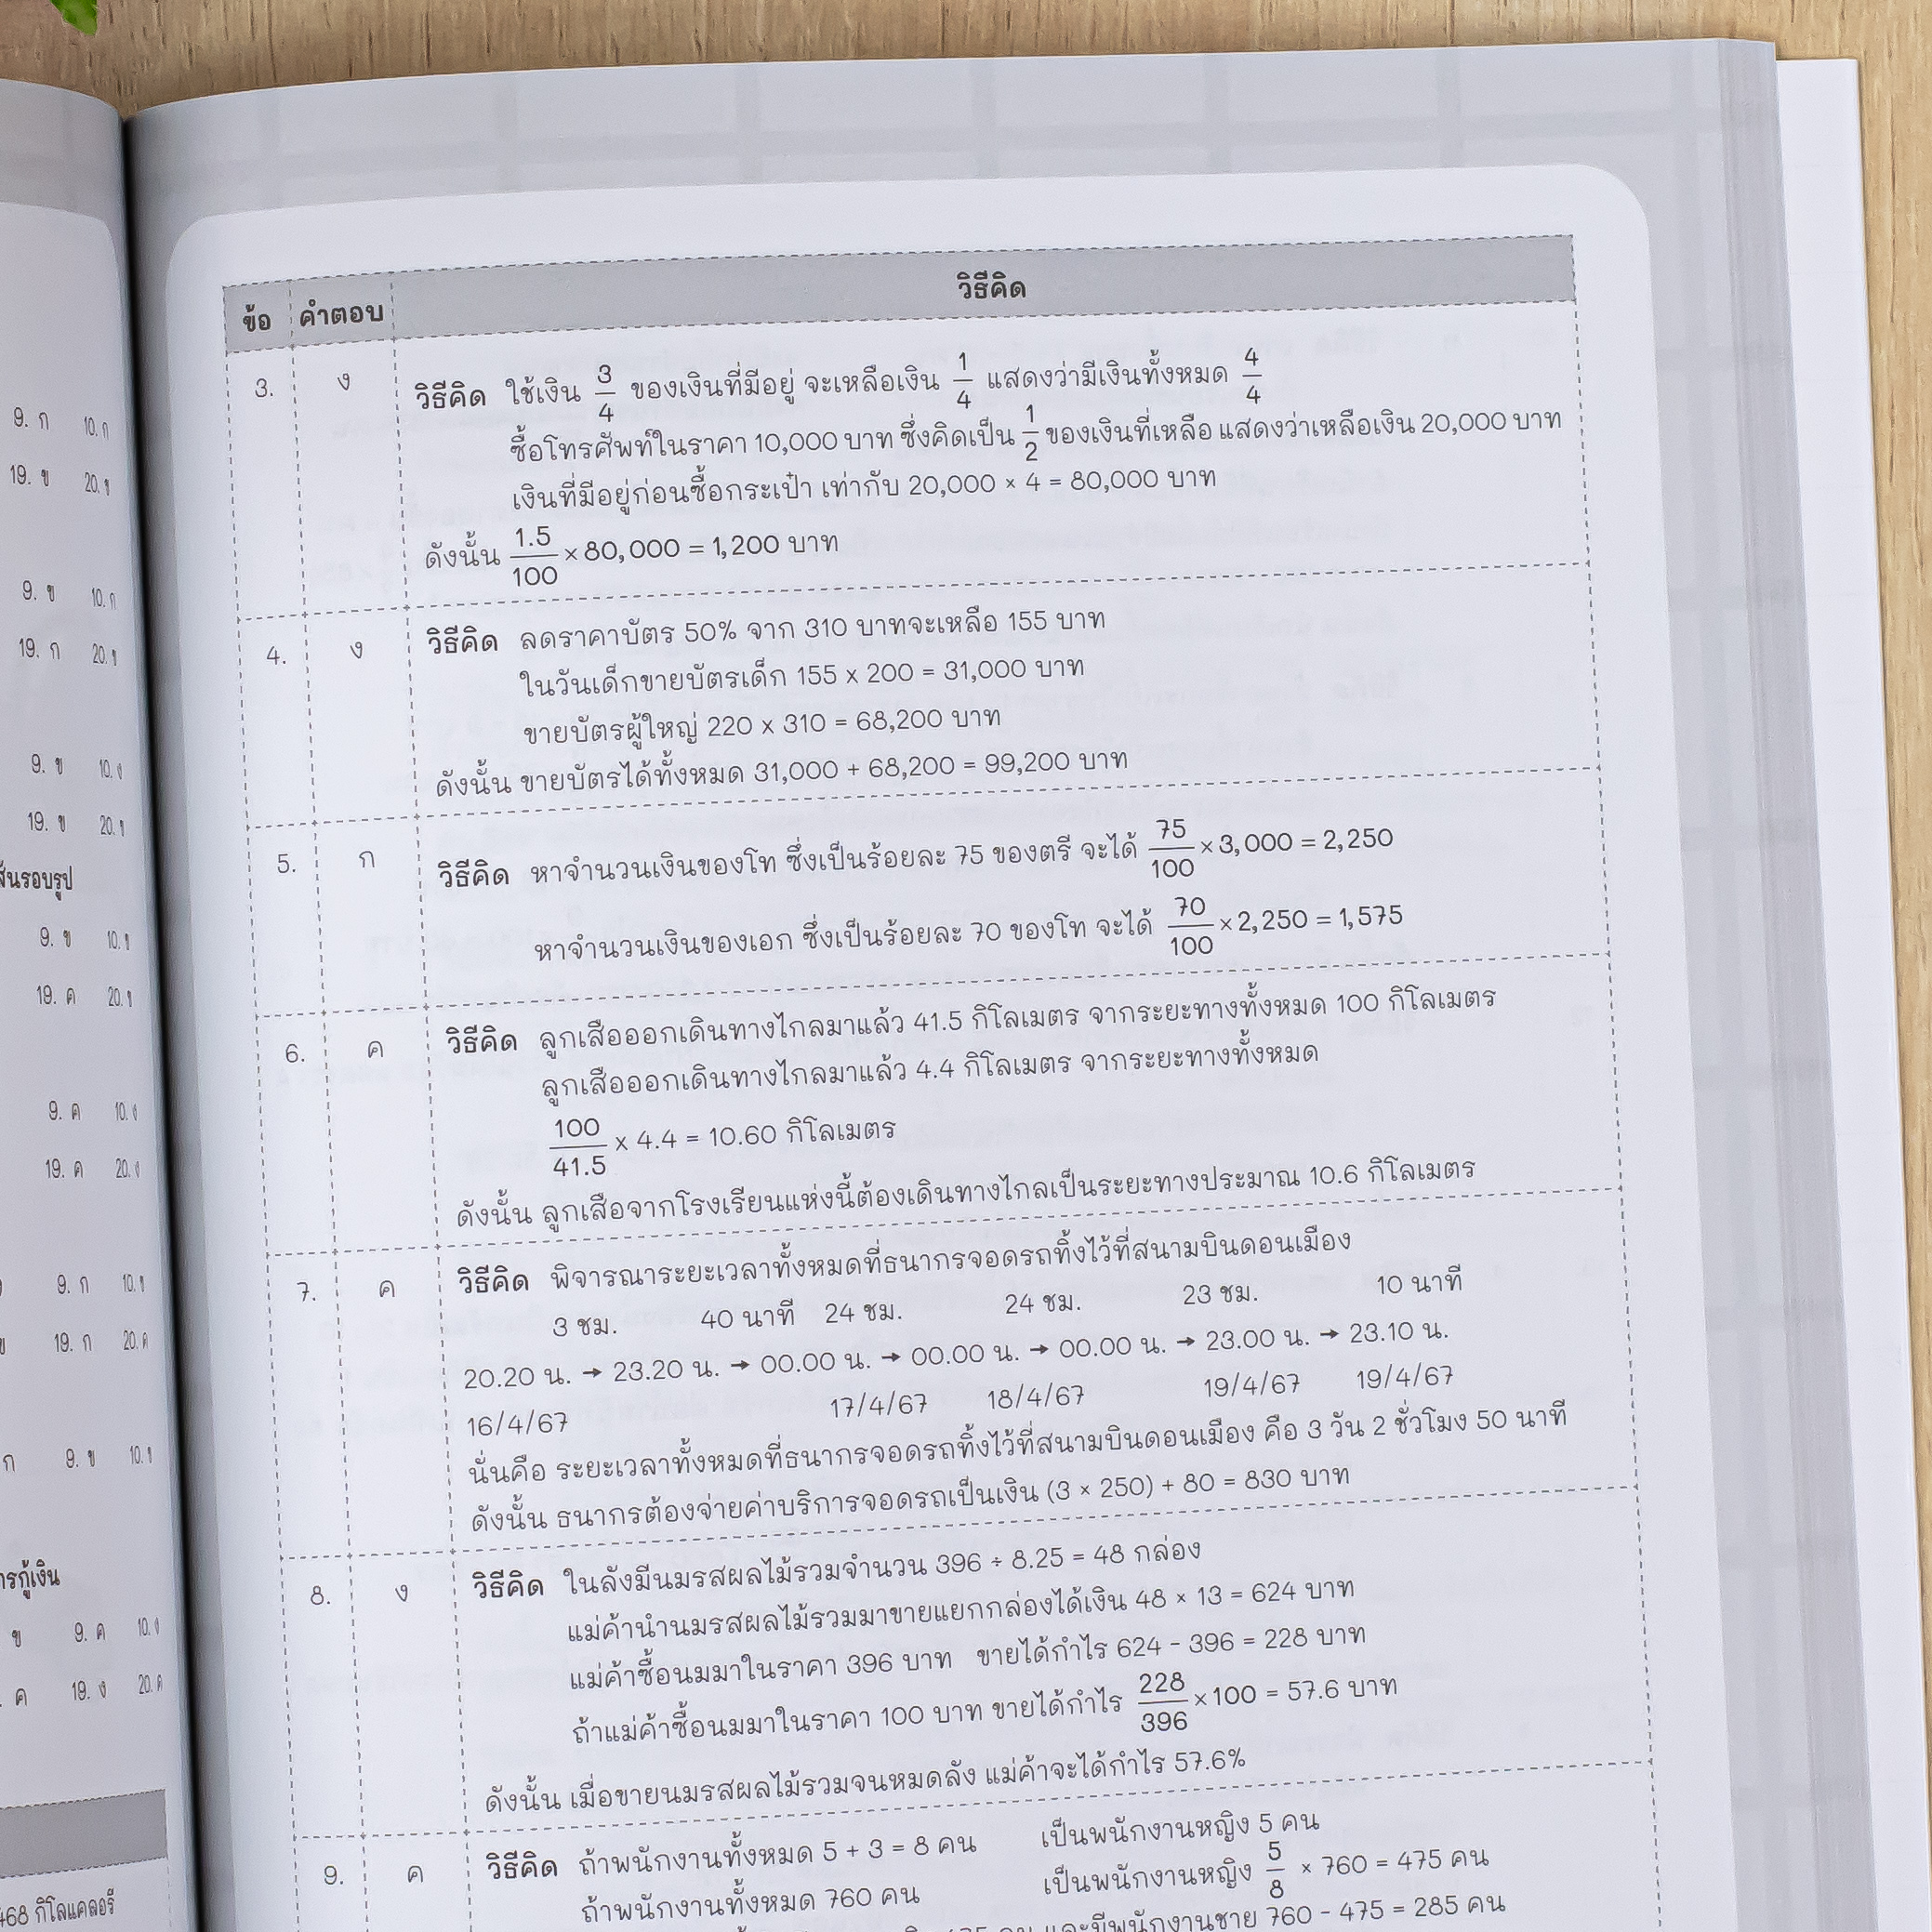 9. ก 10. ก
19. ข 20. ข
9. ข 10. ก
19. ก 20. ข
9. ข 10. ง
19. ข 20. ข
ส้นรอบรูป
9. ข 10. ข
19. ค 20. ข
9. ค 10. ง
19. ค 20. ง
9. ก 10. ข
19. ก 20. ค
ก 9. ข 10. ข
ารกู้เงิน
ข 9. ค 10. ง
ค 19. ง 20. ค
468 กิโลแคลอรี
ข้อ คำตอบ วิธีคิด
3. ง วิธีคิด ใช้เงิน 3/4 ของเงินที่มีอยู่ จะเหลือเงิน 1/4 แสดงว่ามีเงินทั้งหมด 4/4
ซื้อโทรศัพท์ในราคา 10,000 บาท ซึ่งคิดเป็น 1/2 ของเงินที่เหลือ แสดงว่าเหลือเงิน 20,000 บาท
เงินที่มีอยู่ก่อนซื้อกระเป๋า เท่ากับ 20,000 × 4 = 80,000 บาท
ดังนั้น 1.5/100 × 80,000 = 1,200 บาท
4. ง วิธีคิด ลดราคาบัตร 50% จาก 310 บาทจะเหลือ 155 บาท
ในวันเด็กขายบัตรเด็ก 155 x 200 = 31,000 บาท
ขายบัตรผู้ใหญ่ 220 x 310 = 68,200 บาท
ดังนั้น ขายบัตรได้ทั้งหมด 31,000 + 68,200 = 99,200 บาท
5. ก วิธีคิด หาจำนวนเงินของโท ซึ่งเป็นร้อยละ 75 ของตรี จะได้ 75/100 × 3,000 = 2,250
หาจำนวนเงินของเอก ซึ่งเป็นร้อยละ 70 ของโท จะได้ 70/100 × 2,250 = 1,575
6. ค วิธีคิด ลูกเสือออกเดินทางไกลมาแล้ว 41.5 กิโลเมตร จากระยะทางทั้งหมด 100 กิโลเมตร
ลูกเสือออกเดินทางไกลมาแล้ว 4.4 กิโลเมตร จากระยะทางทั้งหมด
100/41.5 x 4.4 = 10.60 กิโลเมตร
ดังนั้น ลูกเสือจากโรงเรียนแห่งนี้ต้องเดินทางไกลเป็นระยะทางประมาณ 10.6 กิโลเมตร
7. ค วิธีคิด พิจารณาระยะเวลาทั้งหมดที่ธนากรจอดรถทิ้งไว้ที่สนามบินดอนเมือง
3 ชม. 40 นาที 24 ชม. 24 ชม. 23 ชม. 10 นาที
20.20 น. → 23.20 น. → 00.00 น. → 00.00 น. → 00.00 น. → 23.00 น. → 23.10 น.
16/4/67 17/4/67 18/4/67 19/4/67 19/4/67
นั่นคือ ระยะเวลาทั้งหมดที่ธนากรจอดรถทิ้งไว้ที่สนามบินดอนเมือง คือ 3 วัน 2 ชั่วโมง 50 นาที
ดังนั้น ธนากรต้องจ่ายค่าบริการจอดรถเป็นเงิน (3 × 250) + 80 = 830 บาท
8. ง วิธีคิด ในลังมีนมรสผลไม้รวมจำนวน 396 ÷ 8.25 = 48 กล่อง
แม่ค้านำนมรสผลไม้รวมมาขายแยกกล่องได้เงิน 48 × 13 = 624 บาท
แม่ค้าซื้อนมมาในราคา 396 บาท ขายได้กำไร 624 - 396 = 228 บาท
ถ้าแม่ค้าซื้อนมมาในราคา 100 บาท ขายได้กำไร 228/396 × 100 = 57.6 บาท
ดังนั้น เมื่อขายนมรสผลไม้รวมจนหมดลัง แม่ค้าจะได้กำไร 57.6%
9. ค วิธีคิด ถ้าพนักงานทั้งหมด 5 + 3 = 8 คน เป็นพนักงานหญิง 5 คน
ถ้าพนักงานทั้งหมด 760 คน เป็นพนักงานหญิง 5/8 × 760 = 475 คน
คน และมีพนักงานชาย 760 - 475 = 285 คน